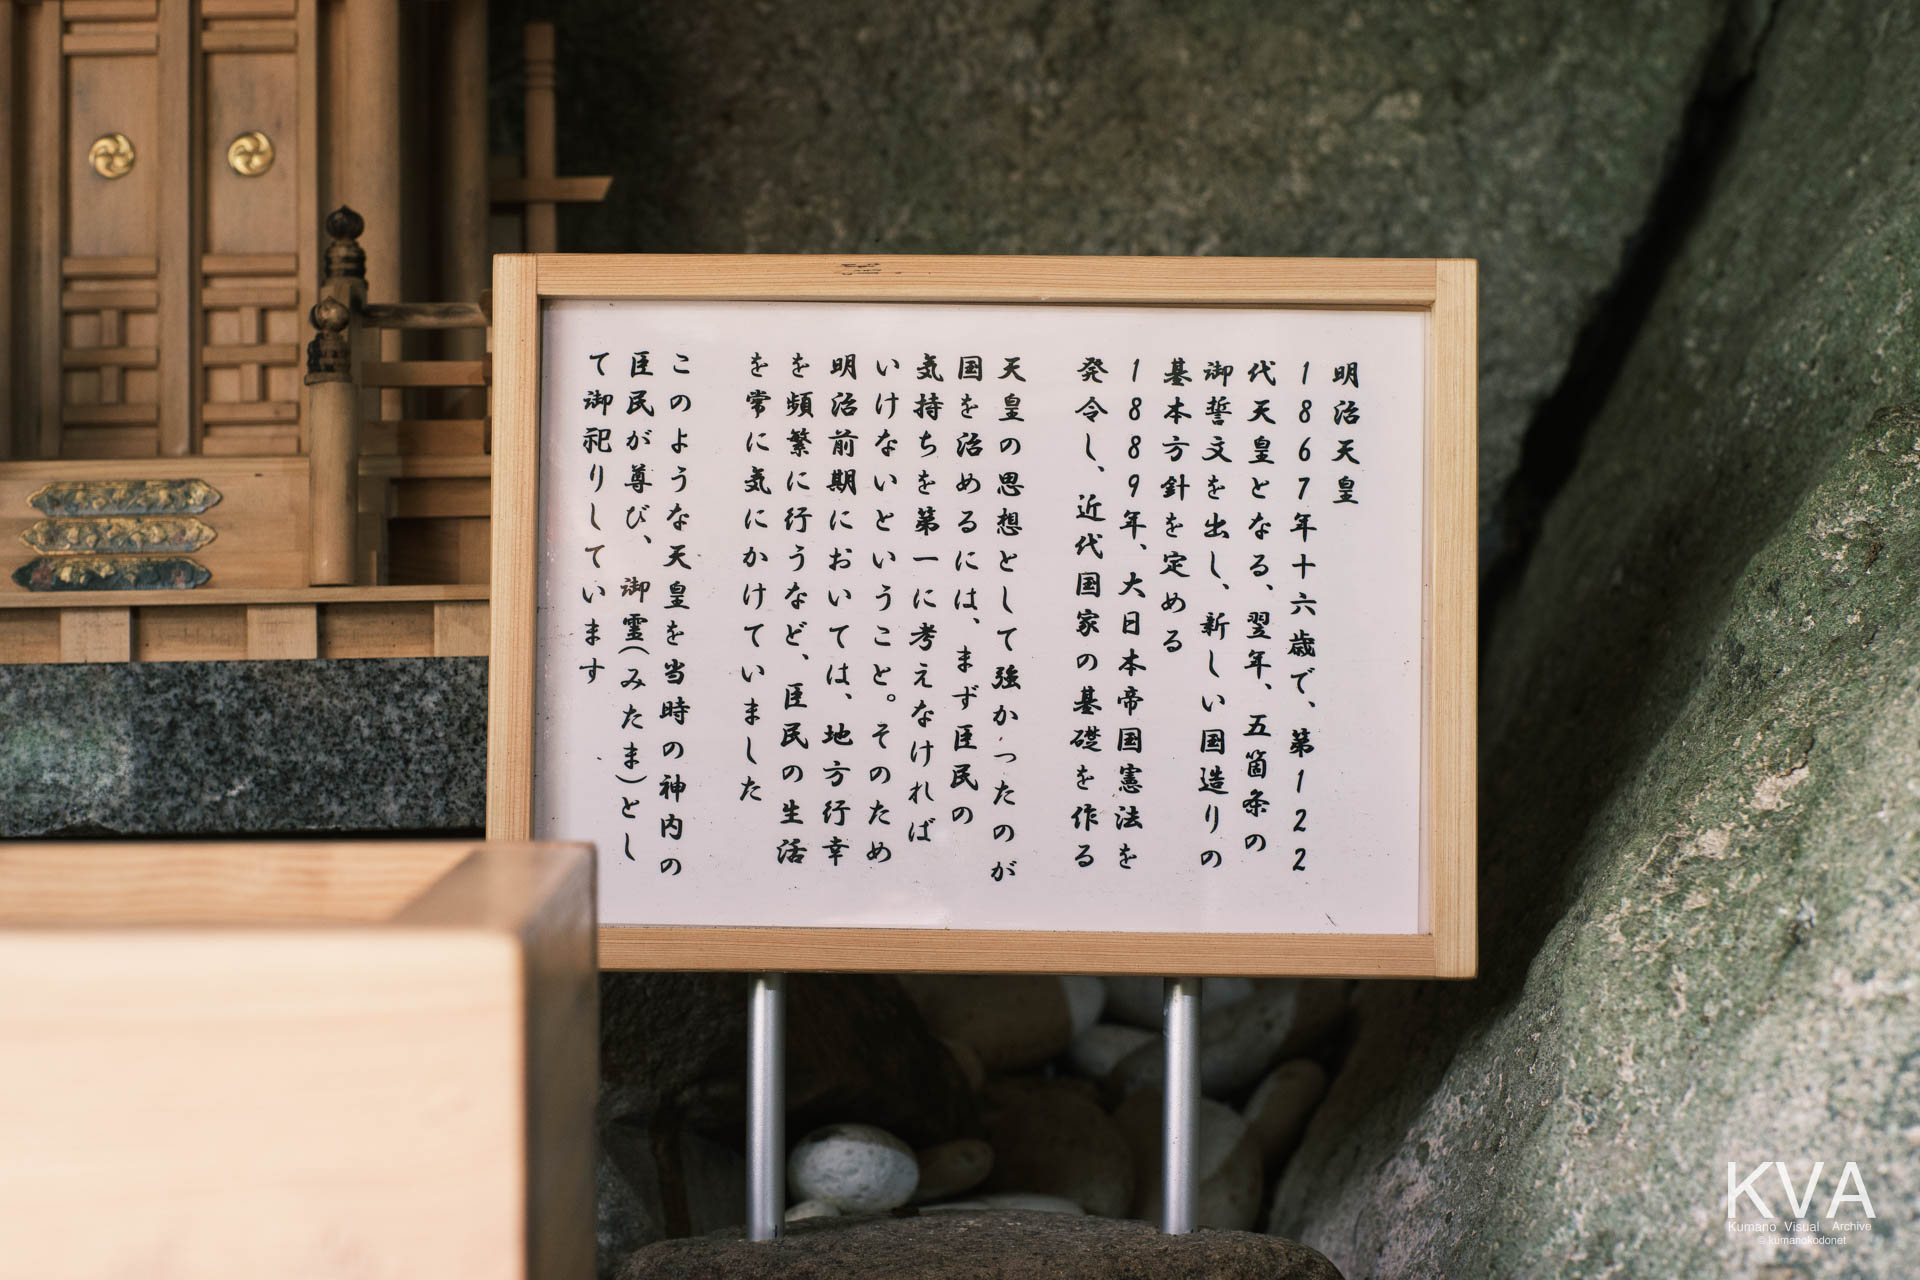 明治天皇
1867年十六歳で、第122
代天皇となる、翌年、五箇条の
御誓文を出し、新しい国造りの
基本方針を定める
1889年、大日本帝国憲法を
発令し、近代国家の基礎を作る
天皇の思想として強かったのが
国を治めるには、まず臣民の
気持ちを第一に考えなければ
いけないということ。そのため
明治前期においては、地方行幸
を頻繁に行うなど、臣民の生活
を常に気にかけていました
このような天皇を当時の神内の
臣民が尊び、御霊(みたま)とし
て御祀りしています
KVA
Kumano Visual Archive
© kumanokodonet